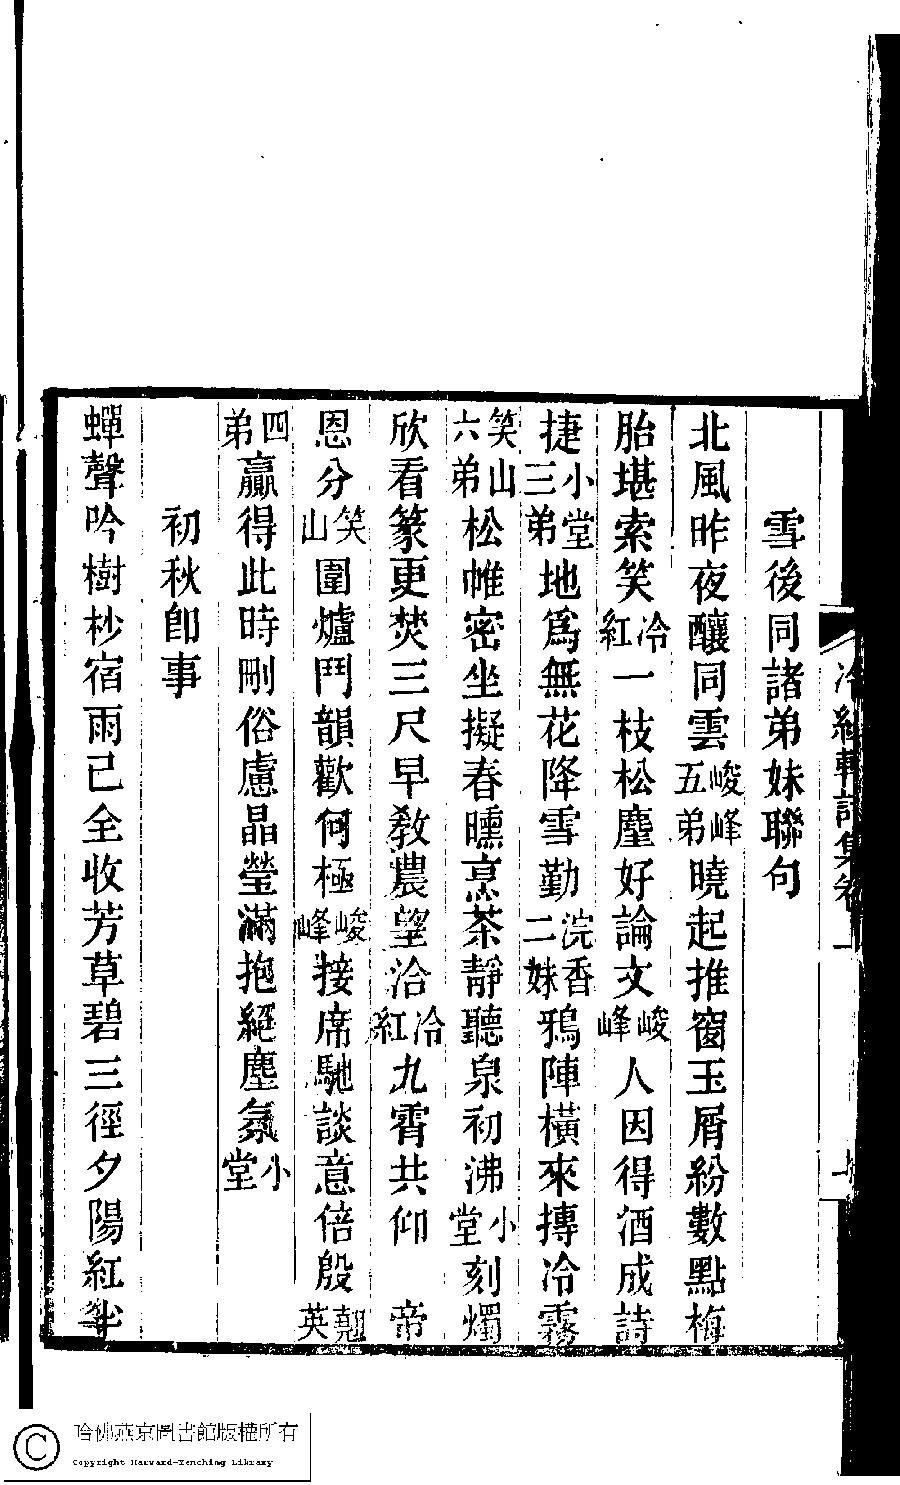 冷紅軒詩集卷一
雪後同諸弟妹聯句
北風昨夜釀同雲峻峰五弟曉起推窗玉屑紛數點梅
胎堪索笑冷紅一枝松麈好論文峻峰人因得酒成詩
捷小堂三弟地爲無花降雪勤浣香二妹鴉陣橫來摶冷霧
笑山六弟松帷密坐擬春曛烹茶靜聽泉初沸小堂刻燭
欣看篆更焚三尺早教農望洽冷紅九霄共仰 帝
恩分笑山圍爐鬥韻歡何極峻峰接席馳談意倍殷翹英
四弟贏得此時刪俗慮晶瑩滿抱絕塵氛小堂
初秋卽事
蟬聲吟樹杪宿雨已全收芳草碧三徑夕陽紅半
哈佛燕京圖書館版權所有
Copyright Harvard-Yenching Library